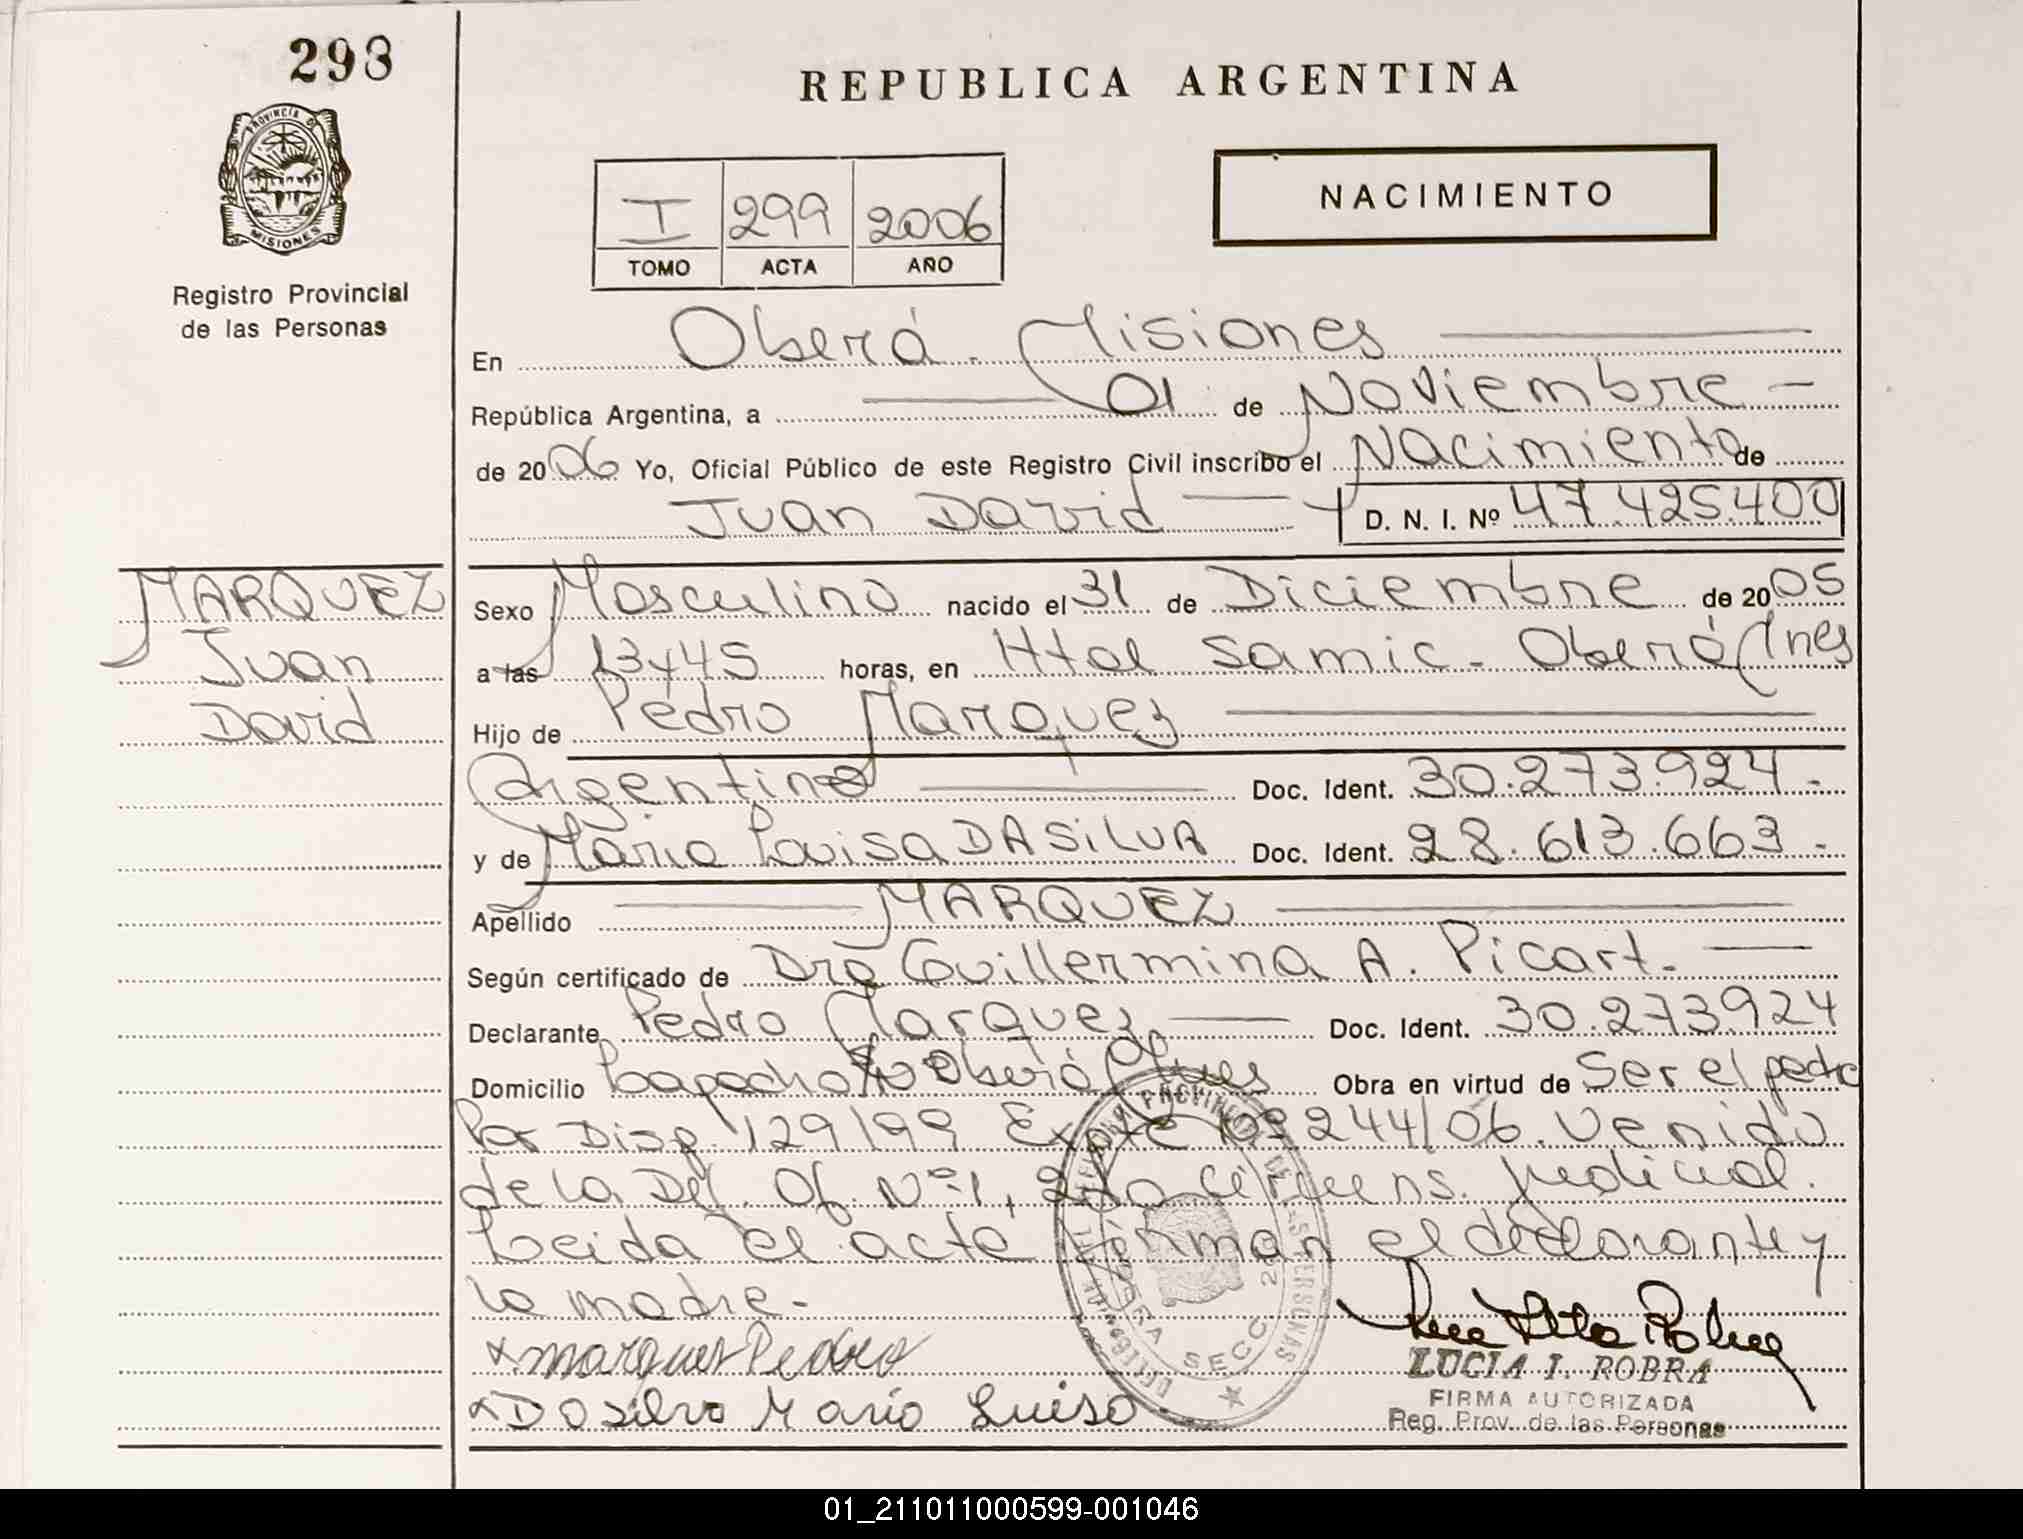 298
REPUBLICA ARGENTINA
PROVINCIA DE
MISIONES
Registro Provincial
de las Personas
NACIMIENTO
I 299 2006
TOMO ACTA AÑO
En Oberá - Misiones
República Argentina, a 01 de Noviembre
de 2006 Yo, Oficial Público de este Registro Civil inscribo el Nacimiento de
Juan David D. N. I. Nº 47.425.400
MARQUEZ
Juan
David
Sexo Masculino nacido el 31 de Diciembre de 2005
a las 13y45 horas, en Htal Samic - Oberá Mnes
Hijo de Pedro Marquez
Argentino Doc. Ident. 30.273.924.-
y de Maria Luisa DA SILVA Doc. Ident. 28.613.663.-
Apellido MARQUEZ
Según certificado de Dra Guillermina A. Picart.
Declarante Pedro Marquez Doc. Ident. 30.273924
Domicilio Oberá Mnes Obra en virtud de Ser el padre
Por Disp. 129/99 Expte 244/06. Venido
de la Def. Of. Nº1, 2da circuns. judicial.
Leida el acta firman el declarante y
la madre.-
x marquez Pedro
x Da silva Maria Luisa
LUCIA I. ROBRA
FIRMA AUTORIZADA
Reg. Prov. de las Personas
01_211011000599-001046